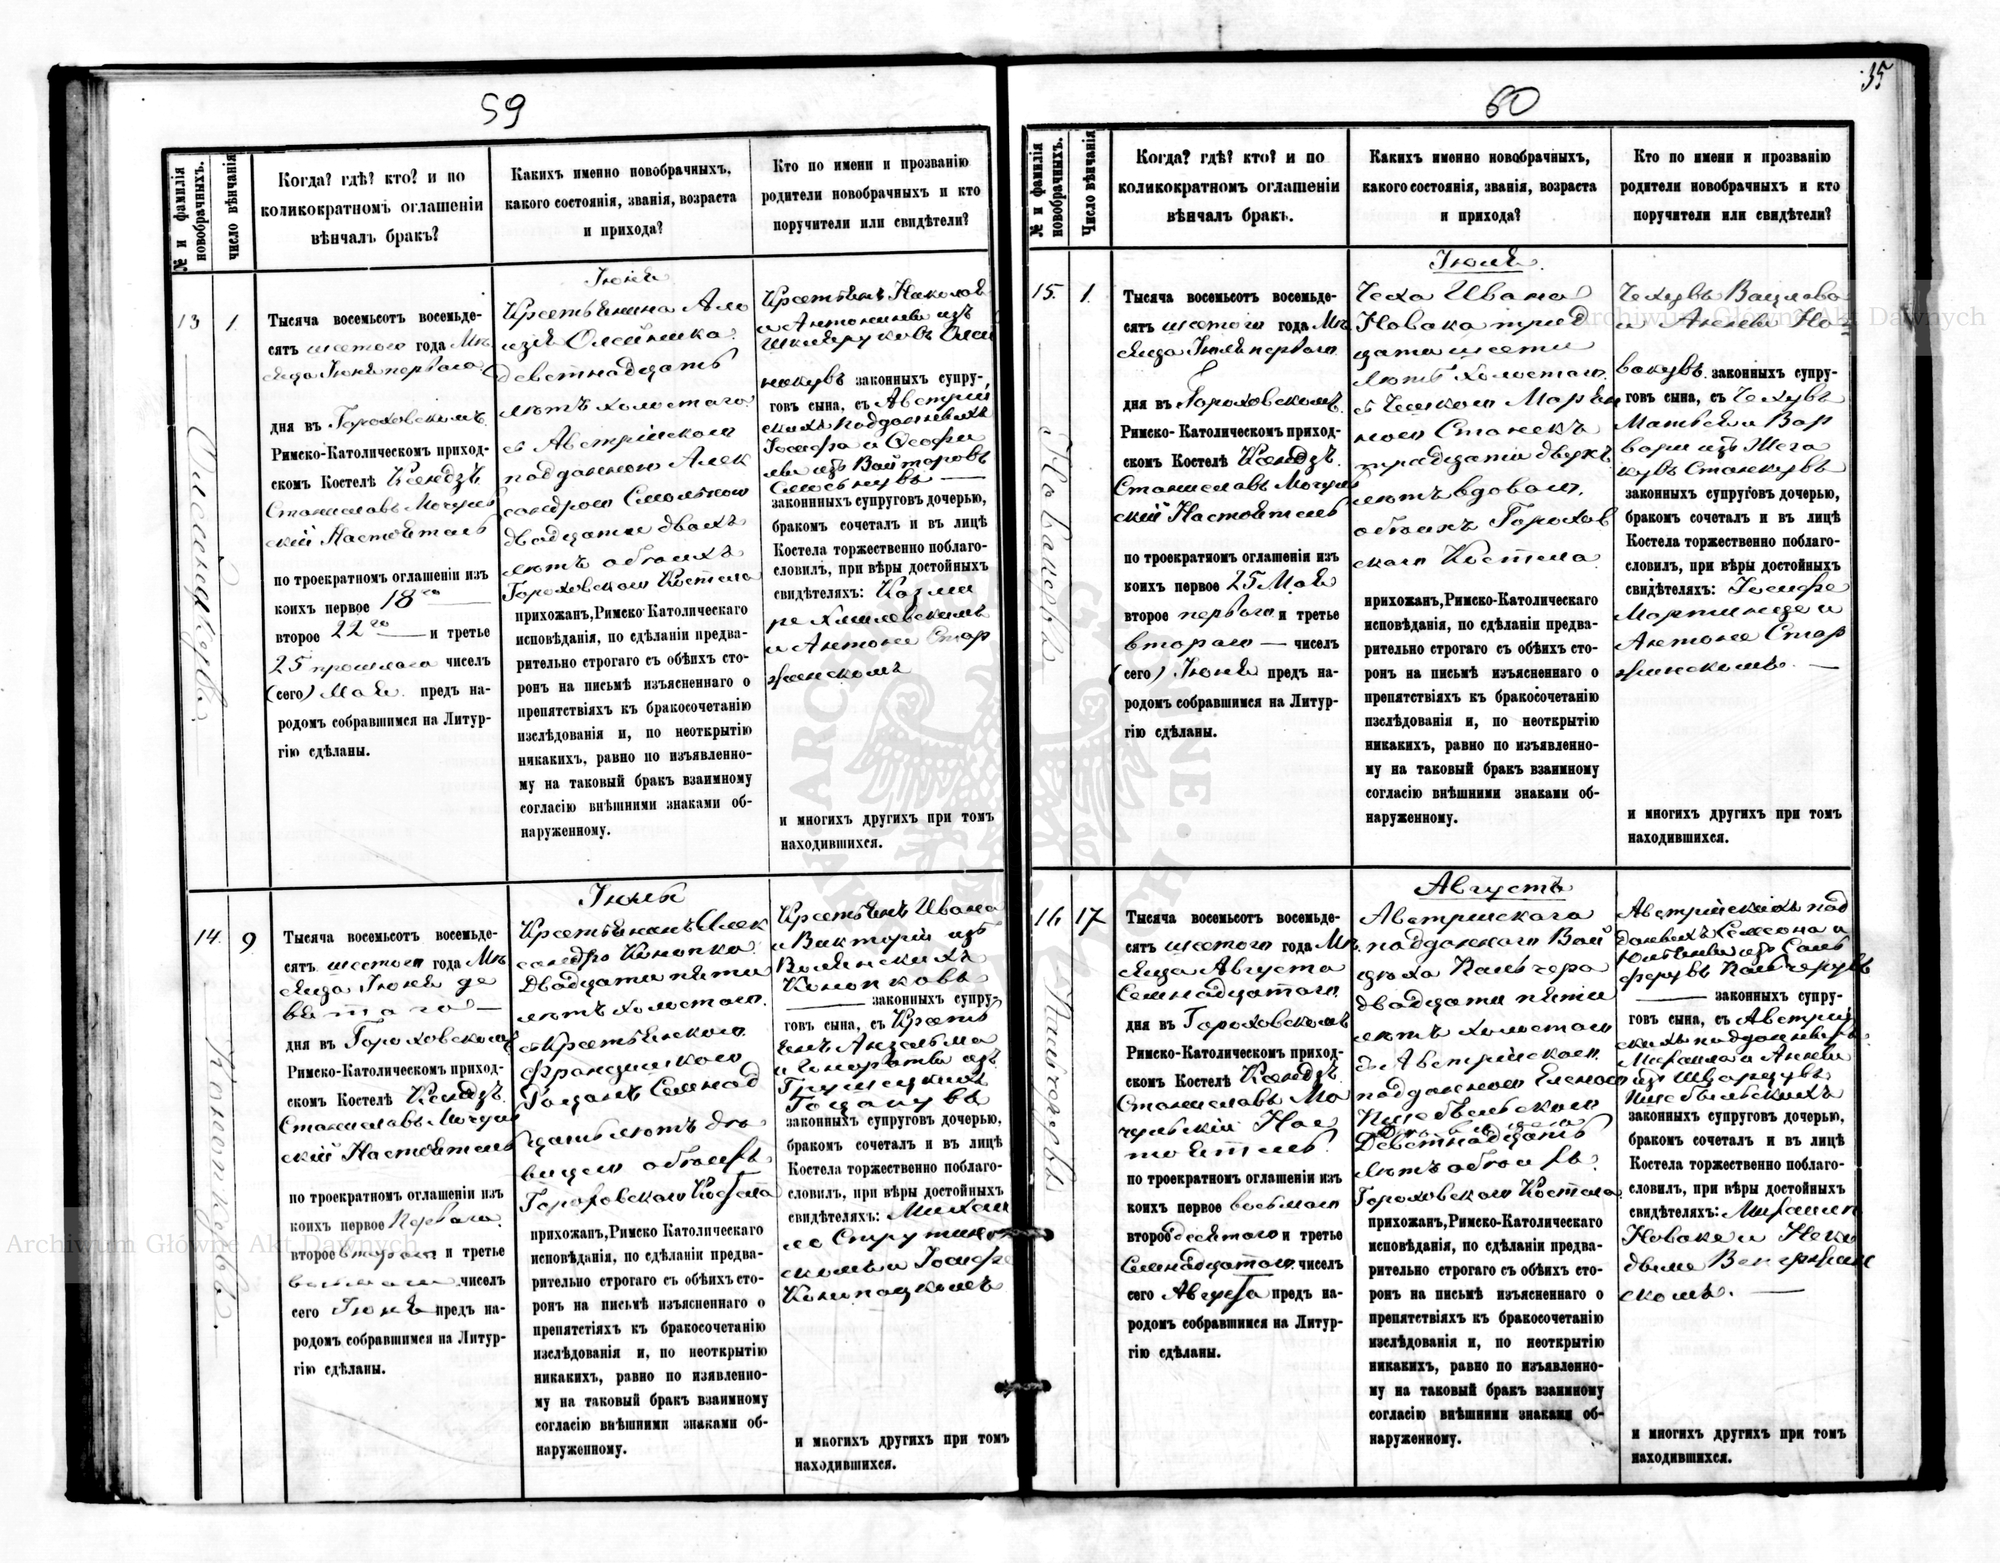 59
№ и фамилія новобрачныхъ.
число вѣнчанія
Когда? гдѣ? кто? и по
коликократномъ оглашеніи
вѣнчалъ бракъ?
Какихъ именно новобрачныхъ,
какого состоянія, званія, возраста
и прихода?
Кто по имени и прозванію
родители новобрачныхъ и кто
поручители или свидѣтели?
13
1.
Тысяча восемьсот восемьде-
сятъ шестого года Мѣ
сяца Іюня перваго
дня въ Гороховскомъ
Римско-Католическомъ приход-
скомъ Костелѣ Ксендзъ
Станиславъ Мочуль
скій Настоятель
по троекратномъ оглашеніи изъ
коихъ первое 18го
второе 22го и третье
25 прошлаго чиселъ
(сего) Мая предъ на-
родомъ собравшимся на Литур-
гію сдѣланы.
Іюня
Крестьянина Ало
изія Олейника
девятнадцать
лѣтъ холостаго
съ Австрійскою
подданною Алек
сандрою
двадцати двухъ
лѣтъ обоихъ
Гороховскаго Костела
прихожан, Римско-Католическаго
исповѣданія, по сдѣланіи предва-
рительно строгаго съ обѣихъ сто-
ронъ на письмѣ изъясненнаго о
препятствіяхъ къ бракосочетанію
изслѣдованія и, по неоткрытію
никакихъ, равно по изъявленно-
му на таковый бракъ взаимному
согласію внѣшними знаками об-
наруженному.
Крестьянъ Николая
и Антонины изъ
законныхъ супру-
говъ сына, съ Австрій
скихъ подданныхъ
Іосифа и Теофи
ли изъ
законныхъ супруговъ дочерью,
бракомъ сочеталъ и въ лицѣ
Костела торжественно поблаго-
словилъ, при вѣры достойныхъ
свидѣтеляхъ: Казими
рѣ Хмилевскимъ
и Антонѣ Стар
жинскомъ
и многихъ другихъ при томъ
находившихся.
14.
9
Конопковъ.
Тысяча восемьсотъ восемьде-
сятъ шестого года Мѣ
сяца Іюня де
вятаго
дня въ Гороховскомъ
Римско-Католическомъ приход-
скомъ Костелѣ Ксендзъ
Станиславъ Мочуль
скій Настоятель
по троекратномъ оглашеніи изъ
коихъ первое Перваго
второе втораго и третье
восьмаго чиселъ
сего Іюня предъ на-
родомъ собравшимся на Литур-
гію сдѣланы.
Іюнь
Крестьянинъ Алек
сандръ Конопка
двадцати пяти
лѣтъ холостаго
съ Крестьянскою
Францишкою
семнад
цать лѣтъ дѣ
вицею обоихъ
Гороховскаго Костела
прихожан, Римско Католическаго
исповѣданія, по сдѣланіи предва-
рительно строгаго съ обѣихъ сто-
ронъ на письмѣ изъясненнаго о
препятстіяхъ къ бракосочетанію
изслѣдованія и, по неоткрытію
никакихъ, равно по изявленно-
му на таковый бракъ взаимному
согласію внѣшними знаками об-
наруженному.
Крестьянъ Ивана
и Викторіи изъ
Волянскихъ
Конопковъ
законныхъ супру-
говъ сына, съ Крестъ
янъ Ансельма
и Гонораты изъ
законныхъ супруговъ дочерью,
бракомъ сочеталъ и въ лицѣ
Костела торжественно поблаго-
словилъ, при вѣры достойныхъ
свидѣтеляхъ: Михаи
лѣ
скомъ и Іосифѣ
и многихъ другихъ при томъ
находившихся.
60
35
№ и фамилія новобрачныхъ.
Число вѣнчанія
Когда? гдѣ? кто? и по
коликократномъ оглашеніи
вѣнчалъ бракъ.
Какихъ именно новобрачныхъ,
какого состоянія, званія, возраста
и прихода?
Кто по имени и прозванію
родители новобрачныхъ и кто
поручители или свидѣтели?
15.
1.
Новаковъ
Тысяча восемьсотъ восемьде-
сятъ шестого года Мѣ
сяца Іюля перваго
дня въ Гороховскомъ
Римско-Католическомъ приход-
скомъ Костелѣ Ксендзъ
Станиславъ Мочуль
скій Настоятель
по троекратномъ оглашеніи изъ
коихъ первое 25 Мая
второе перваго и третье
втораго чиселъ
(сего) Іюня предъ на-
родомъ собравшимся на Литур-
гію сдѣланы.
Іюля
Чеха Ивана
Новака трид
цати шести
лѣтъ холостаго
съ Чешкою Маріан
ною Станекъ
тридцати двухъ
лѣтъ вдовою
обоихъ Горохов
скаго Костела
прихожан, Римско-Католическаго
исповѣданія, по сдѣланіи предва-
рительно строгаго съ обѣихъ сто-
ронъ на письмѣ изъясненнаго о
препятствіяхъ къ бракосочетанію
изслѣдованія и, по неоткрытію
никакихъ, равно по изъявленно-
му на таковый бракъ взаимному
согласію внѣшними знаками об-
наруженному.
Чеховъ Вацлава
и Анны Но
ваковъ законныхъ супру-
говъ сына, съ Чеховъ
Матвѣя и Вар
вары изъ
Станковъ
законныхъ супруговъ дочерью,
бракомъ сочеталъ и въ лицѣ
Костела торжественно поблаго-
словилъ, при вѣры достойныхъ
свидѣтеляхъ: Іосифѣ
и
Антонѣ Стар
жинскомъ.
и многихъ другихъ при томъ
находившихся.
16
17
Тысяча восемьсотъ восемьде-
сятъ шестого года Мѣ
сяца Августа
Семнадцатаго
дня въ Гороховскомъ
Римско-Католическомъ приход-
скомъ Костелѣ Ксендзъ
Станиславъ Мо
чульскій Нас
тоятель
по троекратномъ оглашеніи изъ
коихъ первое восьмаго
второе десятаго и третье
Семнадцатаго чиселъ
сего Августа предъ на-
родомъ собравшимся на Литур-
гію сдѣланы.
Августъ
Австрійскаго
подданнаго Вой
цѣха
двадцати пяти
лѣтъ холостаго
съ Австрійскою
подданною Еленою
Девятнадцать
лѣтъ обоихъ
Гороховскаго Костела
прихожан, Римско-Католическаго
исповѣданія, по сдѣланіи предва-
рительно строгаго съ обѣихъ сто-
ронъ на письмѣ изъясненнаго о
препятствіяхъ къ бракосочетанію
изслѣдованія и, по неоткрытію
никакихъ, равно по изъявленно-
му на таковый бракъ взаимному
согласію внѣшними знаками об-
наруженному.
Австрійскихъ под
данныхъ Симеона и
законныхъ супру-
говъ сына, съ Австрій
скихъ подданныхъ
Михаила и Анны
изъ
законныхъ супруговъ дочерью,
бракомъ сочеталъ и въ лицѣ
Костела торжественно поблаго-
словилъ, при вѣры достойныхъ
свидѣтеляхъ: Михаилѣ
Новакѣ и
Венгржин
скомъ.
и многихъ другихъ при томъ
находившихся.
Archiwum Główne Akt Dawnych
Archiwum Główne Akt Dawnych